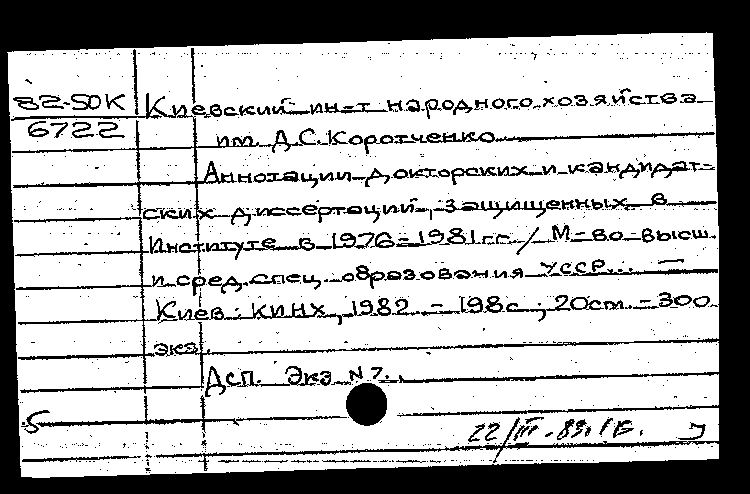 82-50К Киевский ин-т народного хозяйства
6722 им. Д.С.Коротченко
Аннотации докторских и кандидат-
ских диссертаций, защищенных в
Институте в 1976-1981гг. / М-во высш.
и сред. спец. образования УССР... —
Киев : КИНХ, 1982. - 198с ; 20см. - 300
экз.
Дсп. Экз N 7.
5
22/III-83.